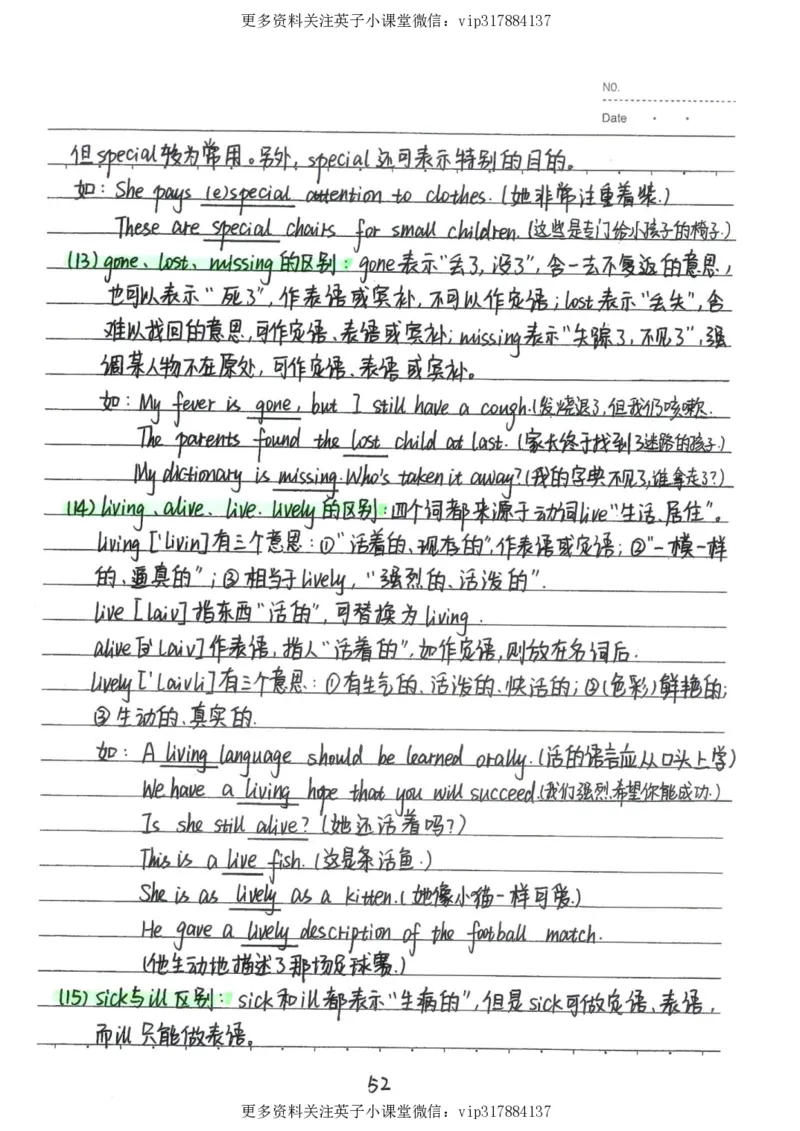 更多资料关注英子小课堂微信：vip317884137
NO.
Date
但special较为常用。另外，special还可表示特别的目的。
如：She pays (e)special attention to clothes.（她非常注重着装.）
These are special chairs for small children.（这些是专门给小孩子的椅子.）
(13) gone、lost、missing的区别：gone表示“丢了，没了”，含一去不复返的意思，
也可以表示“死了”，作表语或宾补，不可以作定语；lost表示“丢失”，含
难以找回的意思，可作定语、表语或宾补；missing表示“失踪了，不见了”，强
调某人物不在原处，可作定语、表语或宾补。
如：My fever is gone, but I still have a cough.（发烧退了，但我仍咳嗽.
The parents found the lost child at last.（家长终于找到了迷路的孩子.）
My dictionary is missing. Who's taken it away?（我的字典不见了，谁拿走了?）
(14) living、alive、live、lively的区别：四个词都来源于动词live“生活、居住”。
living ['livin]有三个意思：①“活着的、现存的”，作表语或定语；②“一模一样
的、逼真的”；③相当于lively，“强烈的、活泼的”.
live [laiv]指东西“活的”，可替换为living.
alive [ə'laiv]作表语，指人“活着的”，如作定语，则放在名词后.
lively ['laivli]有三个意思：①有生气的、活泼的、快活的；②(色彩)鲜艳的；
③生动的、真实的.
如：A living language should be learned orally.（活的语言应从口头上学）
We have a living hope that you will succeed.（我们强烈希望你能成功.）
Is she still alive?（她还活着吗?）
This is a live fish.（这是条活鱼.）
She is as lively as a kitten.（她像小猫一样可爱.）
He gave a lively description of the football match.
（他生动地描述了那场足球赛.）
(15) sick与ill区别：sick和ill都表示“生病的”，但是sick可做定语、表语，
而ill只能做表语。
52
更多资料关注英子小课堂微信：vip317884137